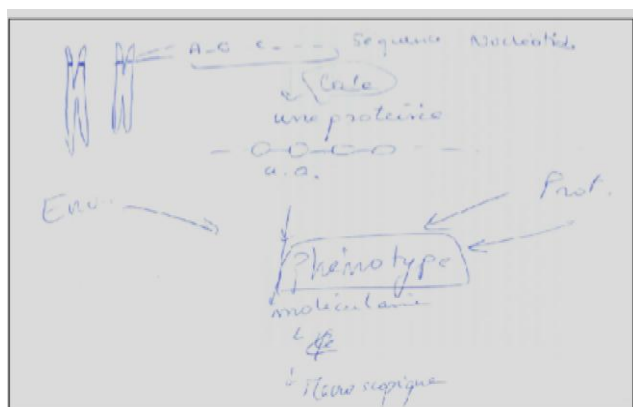 A-G C--- Sequence Nucléotide
Code
une proteine
a.a.
Env.
Prot.
phénotype
moléculaire
Macroscopique